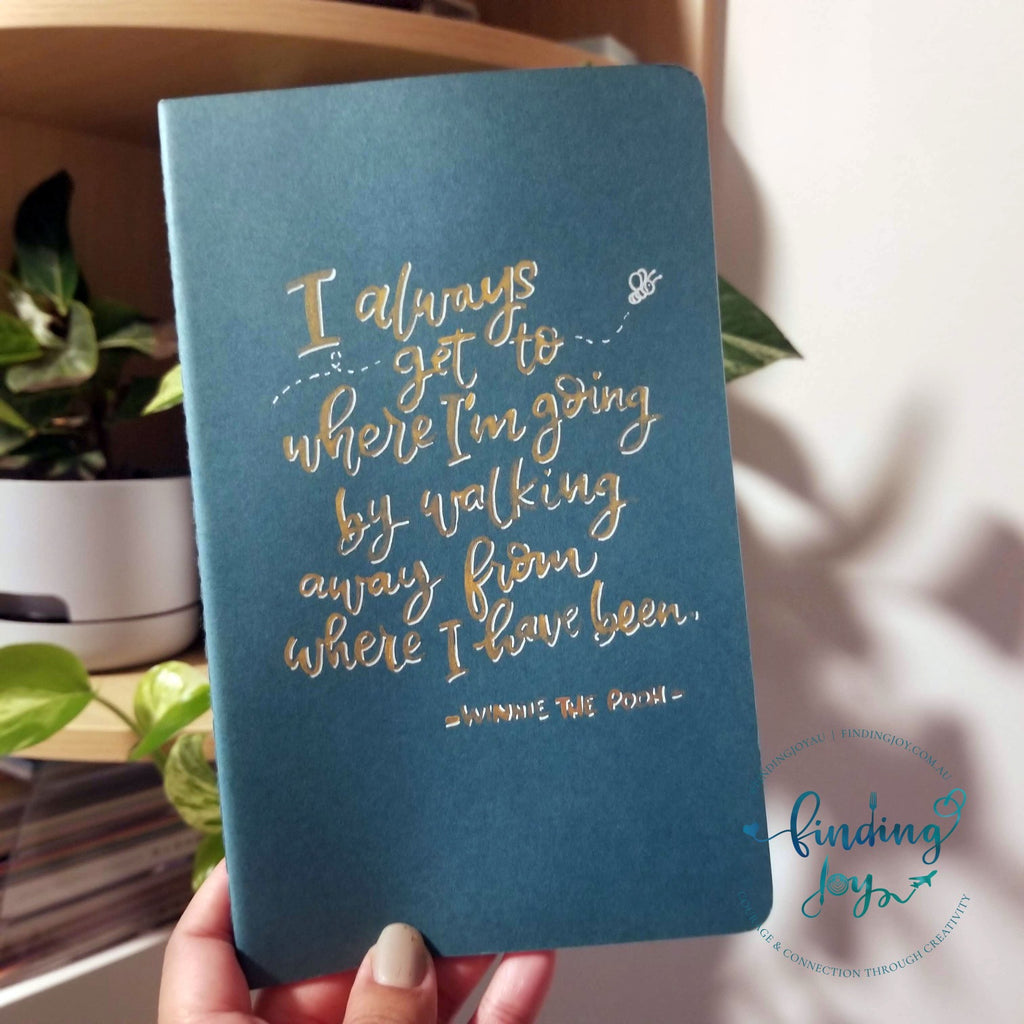 I always
get to
where I'm going
by walking
away from
where I have been.
-WINNIE THE POOH-
FINDINGJOYAU | FINDINGJOY.COM.AU
finding
Joy
COURAGE & CONNECTION THROUGH CREATIVITY